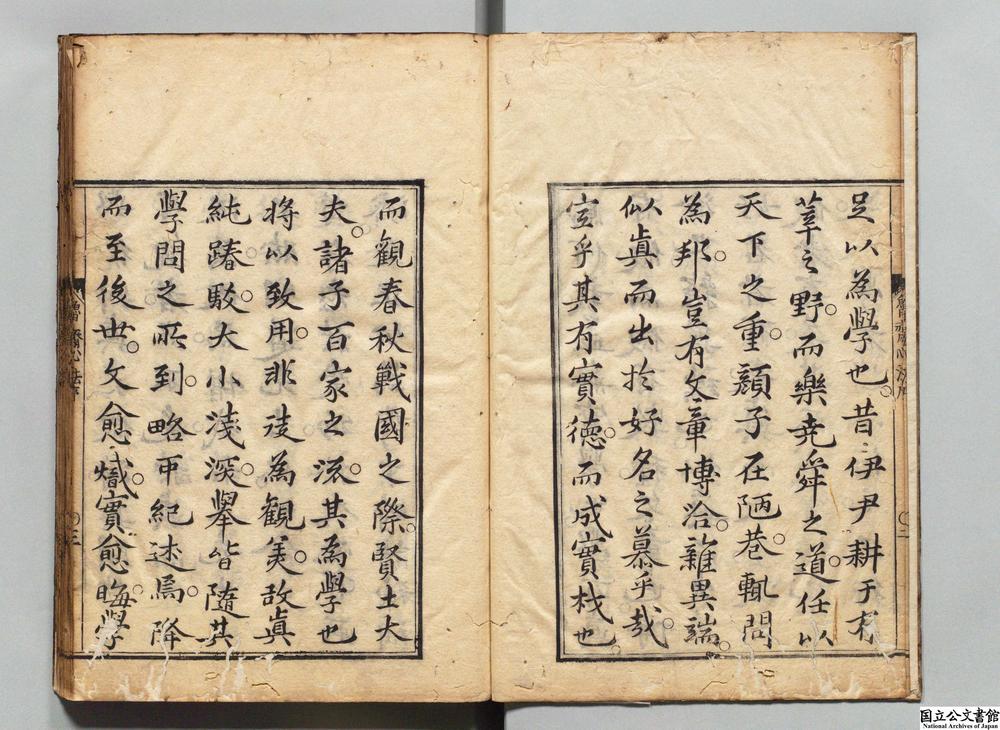 足以為學也。昔伊尹耕于有
莘之野。而樂堯舜之道。任以
天下之重。顏子在陋巷。輒問
為邦。豈有文章博洽。雜異端。
似眞而出於好名之慕乎哉。
宜乎其有實德。而成實材也。
而觀春秋戰國之際。賢士大
夫。諸子百家之流。其為學也
將以致用。非徒為觀美。故眞
純踳駁。大小淺深。舉皆隨其
學問之所到。略可紀述焉。降
而至後世。文愈熾。實愈晦。學
魯齋心法序
〇二
魯齋心法序
〇三
国立公文書館
National Archives of Japan